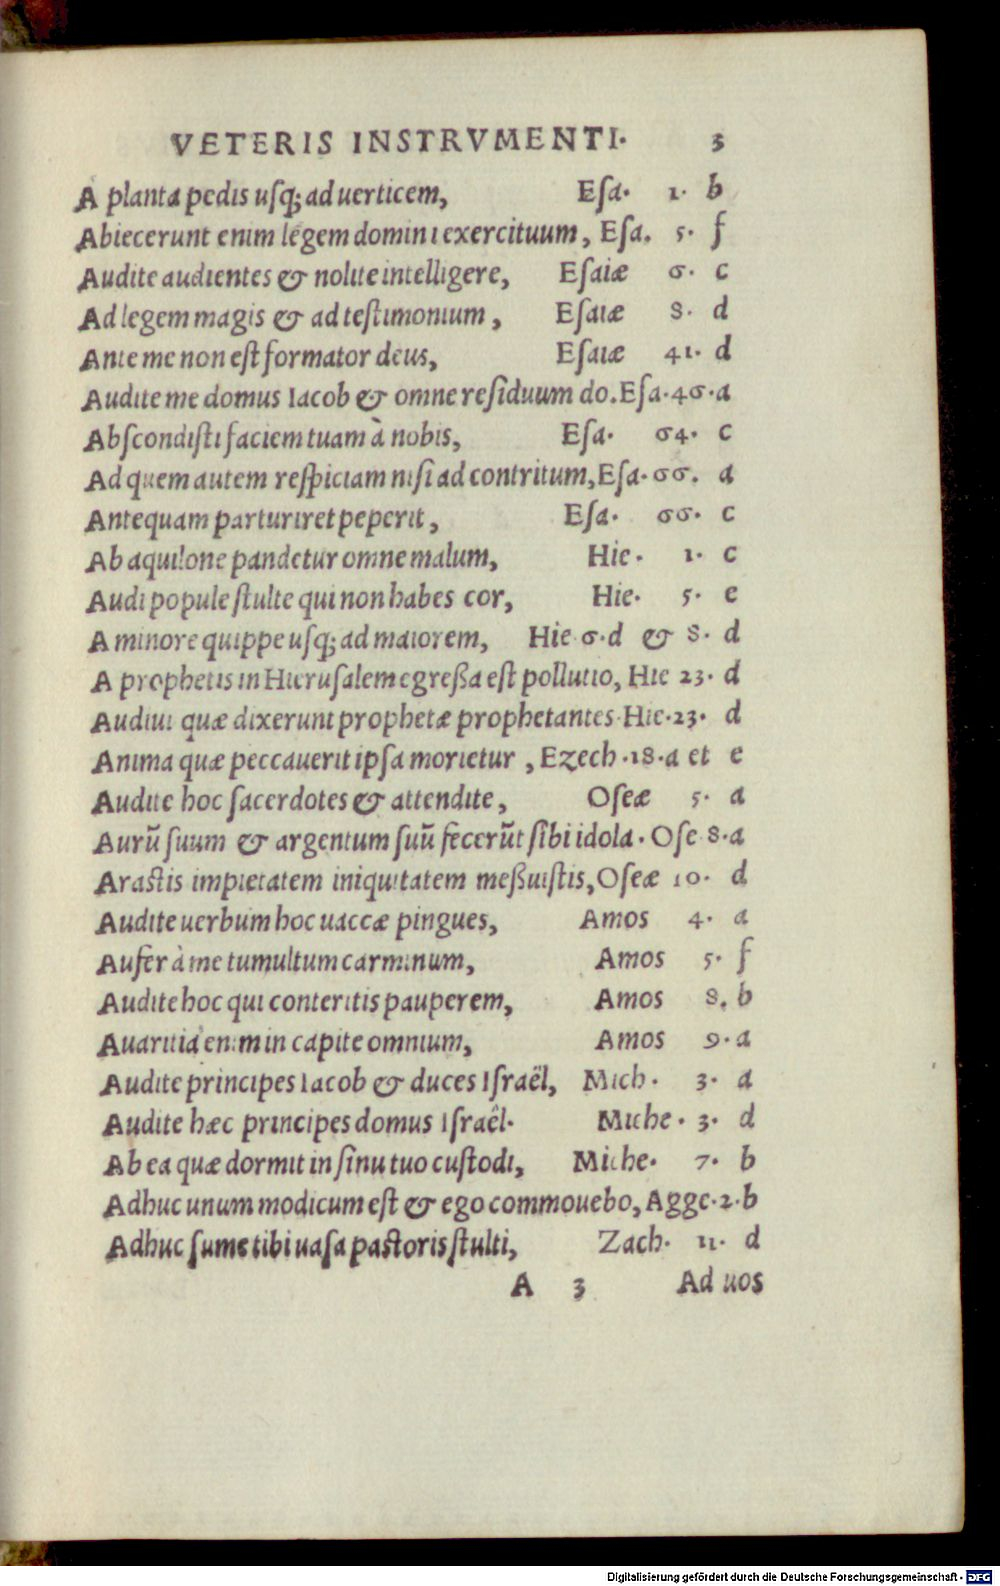 VETERIS INSTRVMENTI. 3
A planta pedis uſq; ad uerticem, Eſa. 1. b
Abiecerunt enim legem domini exercituum, Eſa. 5. f
Audite audientes & nolite intelligere, Eſaiæ 6. c
Ad legem magis & ad teſtimonium, Eſaiæ 8. d
Ante me non eſt formator deus, Eſaiæ 41. d
Audite me domus Iacob & omne reſiduum do. Eſa. 46. a
Abſcondiſti faciem tuam à nobis, Eſa. 64. c
Ad quem autem reſpiciam niſi ad contritum, Eſa. 66. a
Antequam parturiret peperit, Eſa. 66. c
Ab aquilone pandetur omne malum, Hie. 1. c
Audi popule ſtulte qui non habes cor, Hie. 5. e
A minore quippe uſq; ad maiorem, Hie 6. d & 8. d
A prophetis in Hieruſalem egreßa eſt pollutio, Hie 23. d
Audiui quæ dixerunt prophetæ prophetantes. Hie. 23. d
Anima quæ peccauerit ipſa morietur, Ezech. 18. a et e
Audite hoc ſacerdotes & attendite, Oſeæ 5. a
Aurū ſuum & argentum ſuū fecerūt ſibi idola. Oſe 8. a
Arastis impietatem iniquitatem meßuiſtis, Oſeæ 10. d
Audite uerbum hoc uaccæ pingues, Amos 4. a
Aufer à me tumultum carminum, Amos 5. f
Audite hoc qui conteritis pauperem, Amos 8. b
Auaritia enim in capite omnium, Amos 9. a
Audite principes Iacob & duces Iſraël, Mich. 3. a
Audite hæc principes domus Iſraêl. Miche. 3. d
Ab ea quæ dormit in ſinu tuo cuſtodi, Miche. 7. b
Adhuc unum modicum eſt & ego commouebo, Agge. 2. b
Adhuc ſume tibi uaſa pastoris ſtulti, Zach. 11. d
A 3 Ad uos
Digitalisierung gefördert durch die Deutsche Forschungsgemeinschaft - DFG